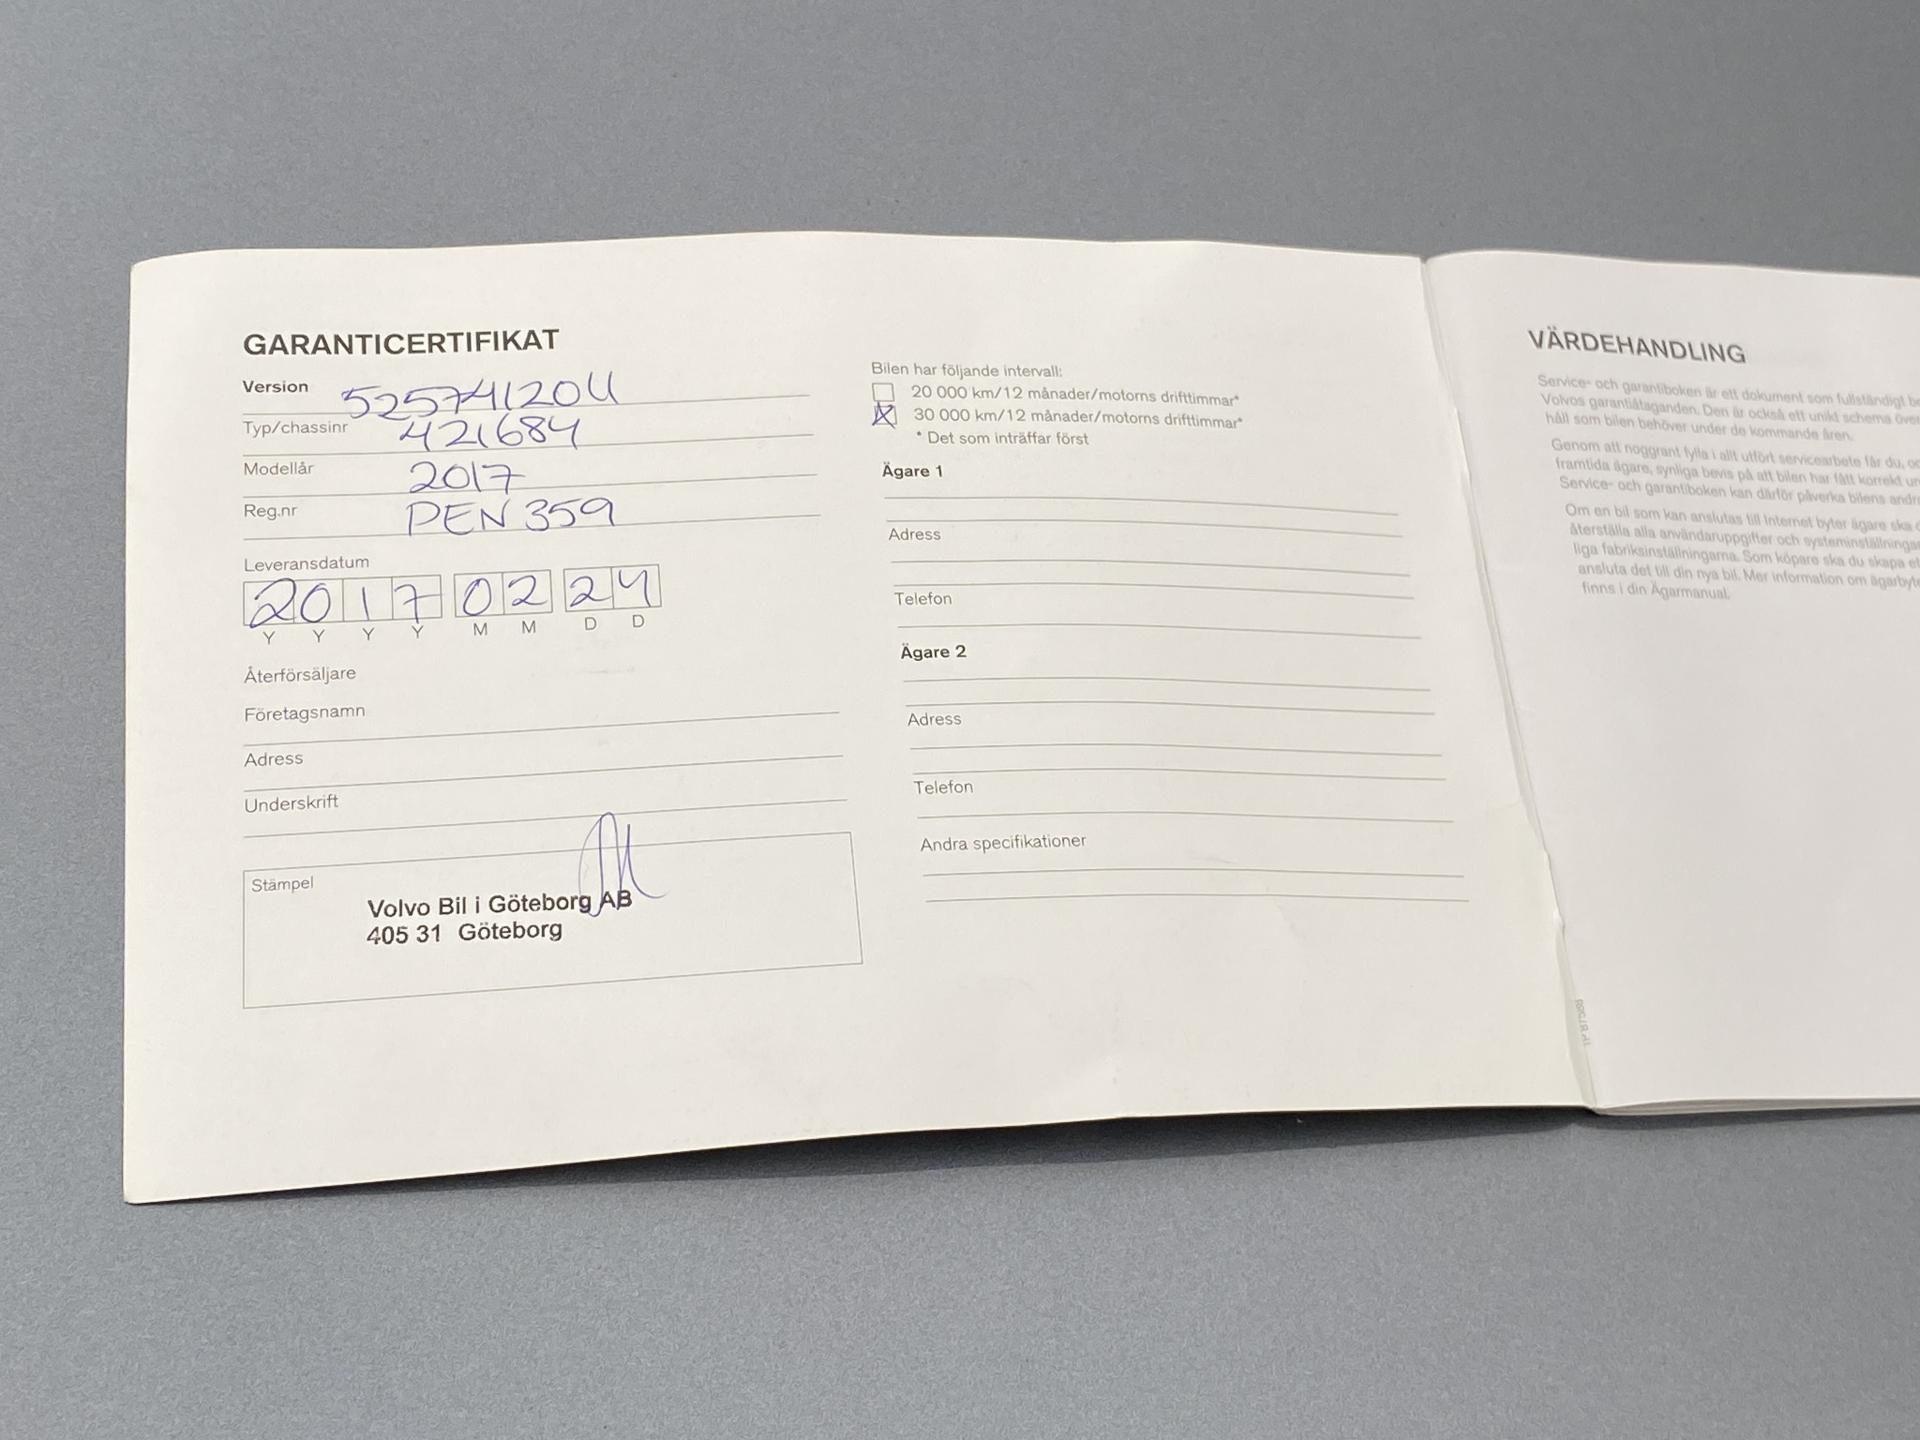 GARANTICERTIFIKAT
Version 52574120U
Typ/chassinr 421684
Modellår 2017
Reg.nr PEN 359
Leveransdatum
2017 02 24
Y Y Y Y M M D D
Återförsäljare
Företagsnamn
Adress
Underskrift
Stämpel
Volvo Bil i Göteborg AB
405 31 Göteborg
Bilen har följande intervall:
20 000 km/12 månader/motorns drifttimmar*
30 000 km/12 månader/motorns drifttimmar*
* Det som inträffar först
Ägare 1
Adress
Telefon
Ägare 2
Adress
Telefon
Andra specifikationer
VÄRDEHANDLING
Service- och garantiboken är ett dokument som fullständigt
Volvos garantiåtaganden. Den är också ett unikt schema
håll som bilen behöver under de kommande åren.
Genom att noggrant fylla i allt utfört servicearbete får du,
framtida ägare, synliga bevis på att bilen har fått korrekt
Service- och garantiboken kan därför påverka bilens
Om en bil som kan anslutas till Internet byter ägare ska
återställa alla användaruppgifter och
liga fabriksinställningarna. Som köpare ska du skapa
ansluta det till din nya bil. Mer information om
finns i din Ägarmanual.